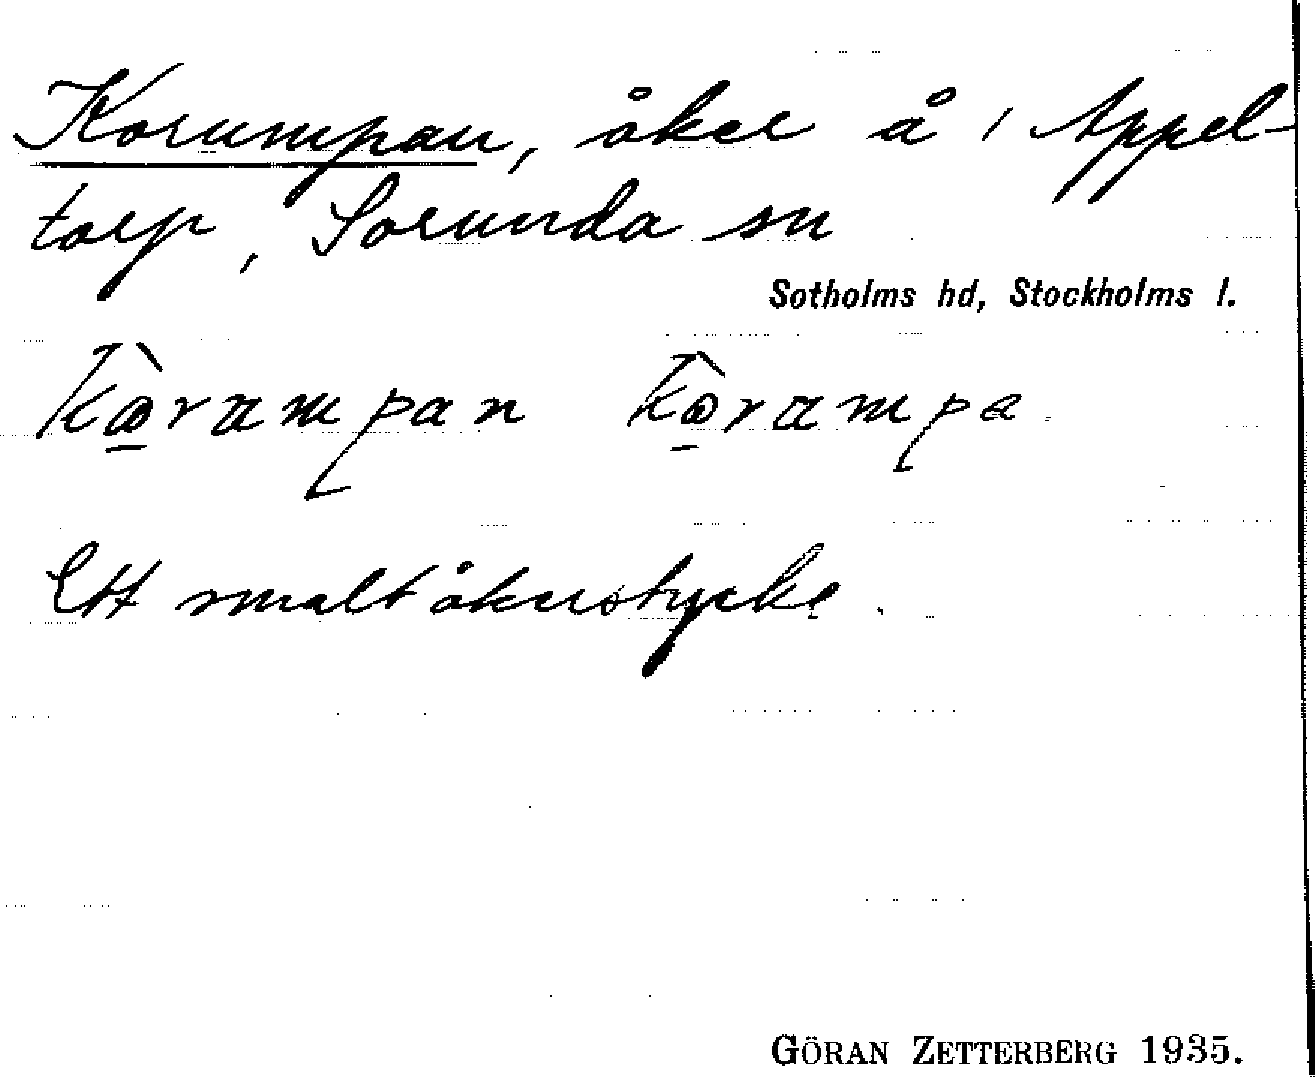 Korumpan, åker å 1 Appel-
torp, Sorunda sn
Sotholms hd, Stockholms l.
Kọ̀rampan Kọ̀rampa
Ett smalt åkerstycke.
GÖRAN ZETTERBERG 1935.